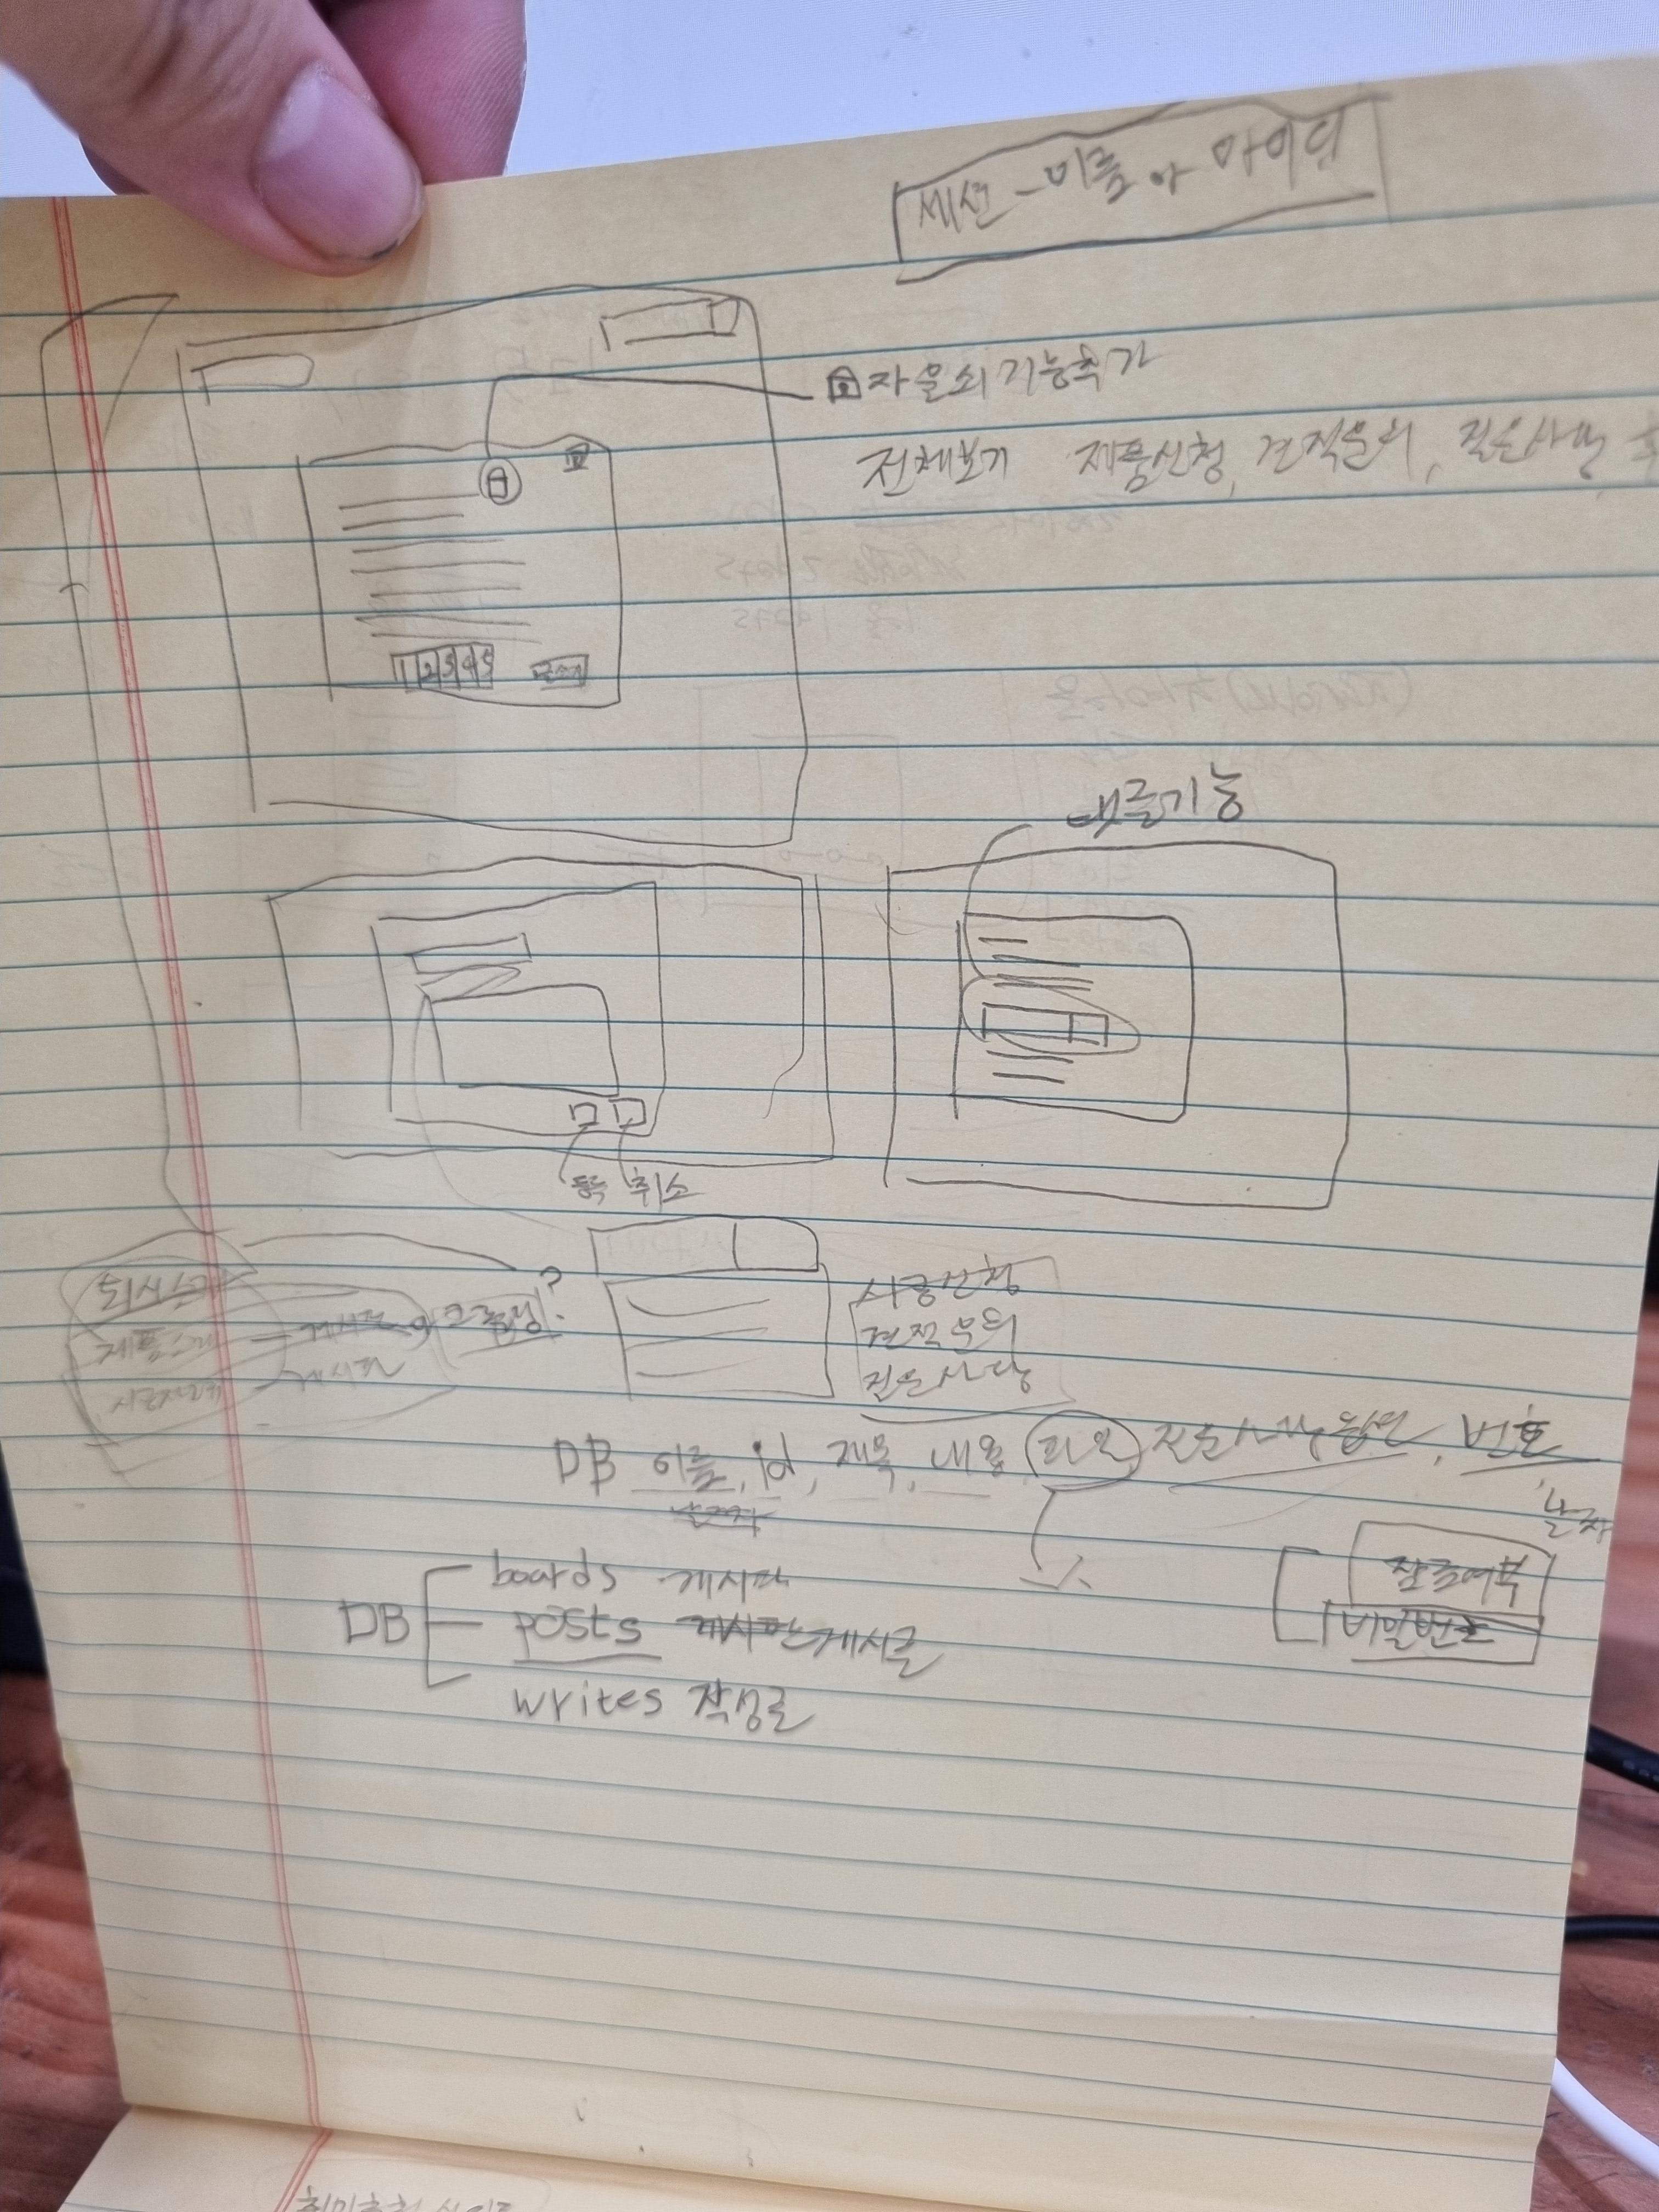 세션 - 이름 아이디
자물쇠 기능추가
전체보기 제품신청, 견적문의, 질문사항
1 2 3 4 5 글쓰기
댓글기능
등록 취소
회사소개
제품소개 - 게시판 크롤링?
시공사례 - 게시판
시공신청
견적문의
질문사항
DB 이름, id, 제목, 내용 파일 질문사항 답변, 번호
날짜
잠금여부
비밀번호
DB
boards 게시판
posts 게시판 게시글
writes 작성글